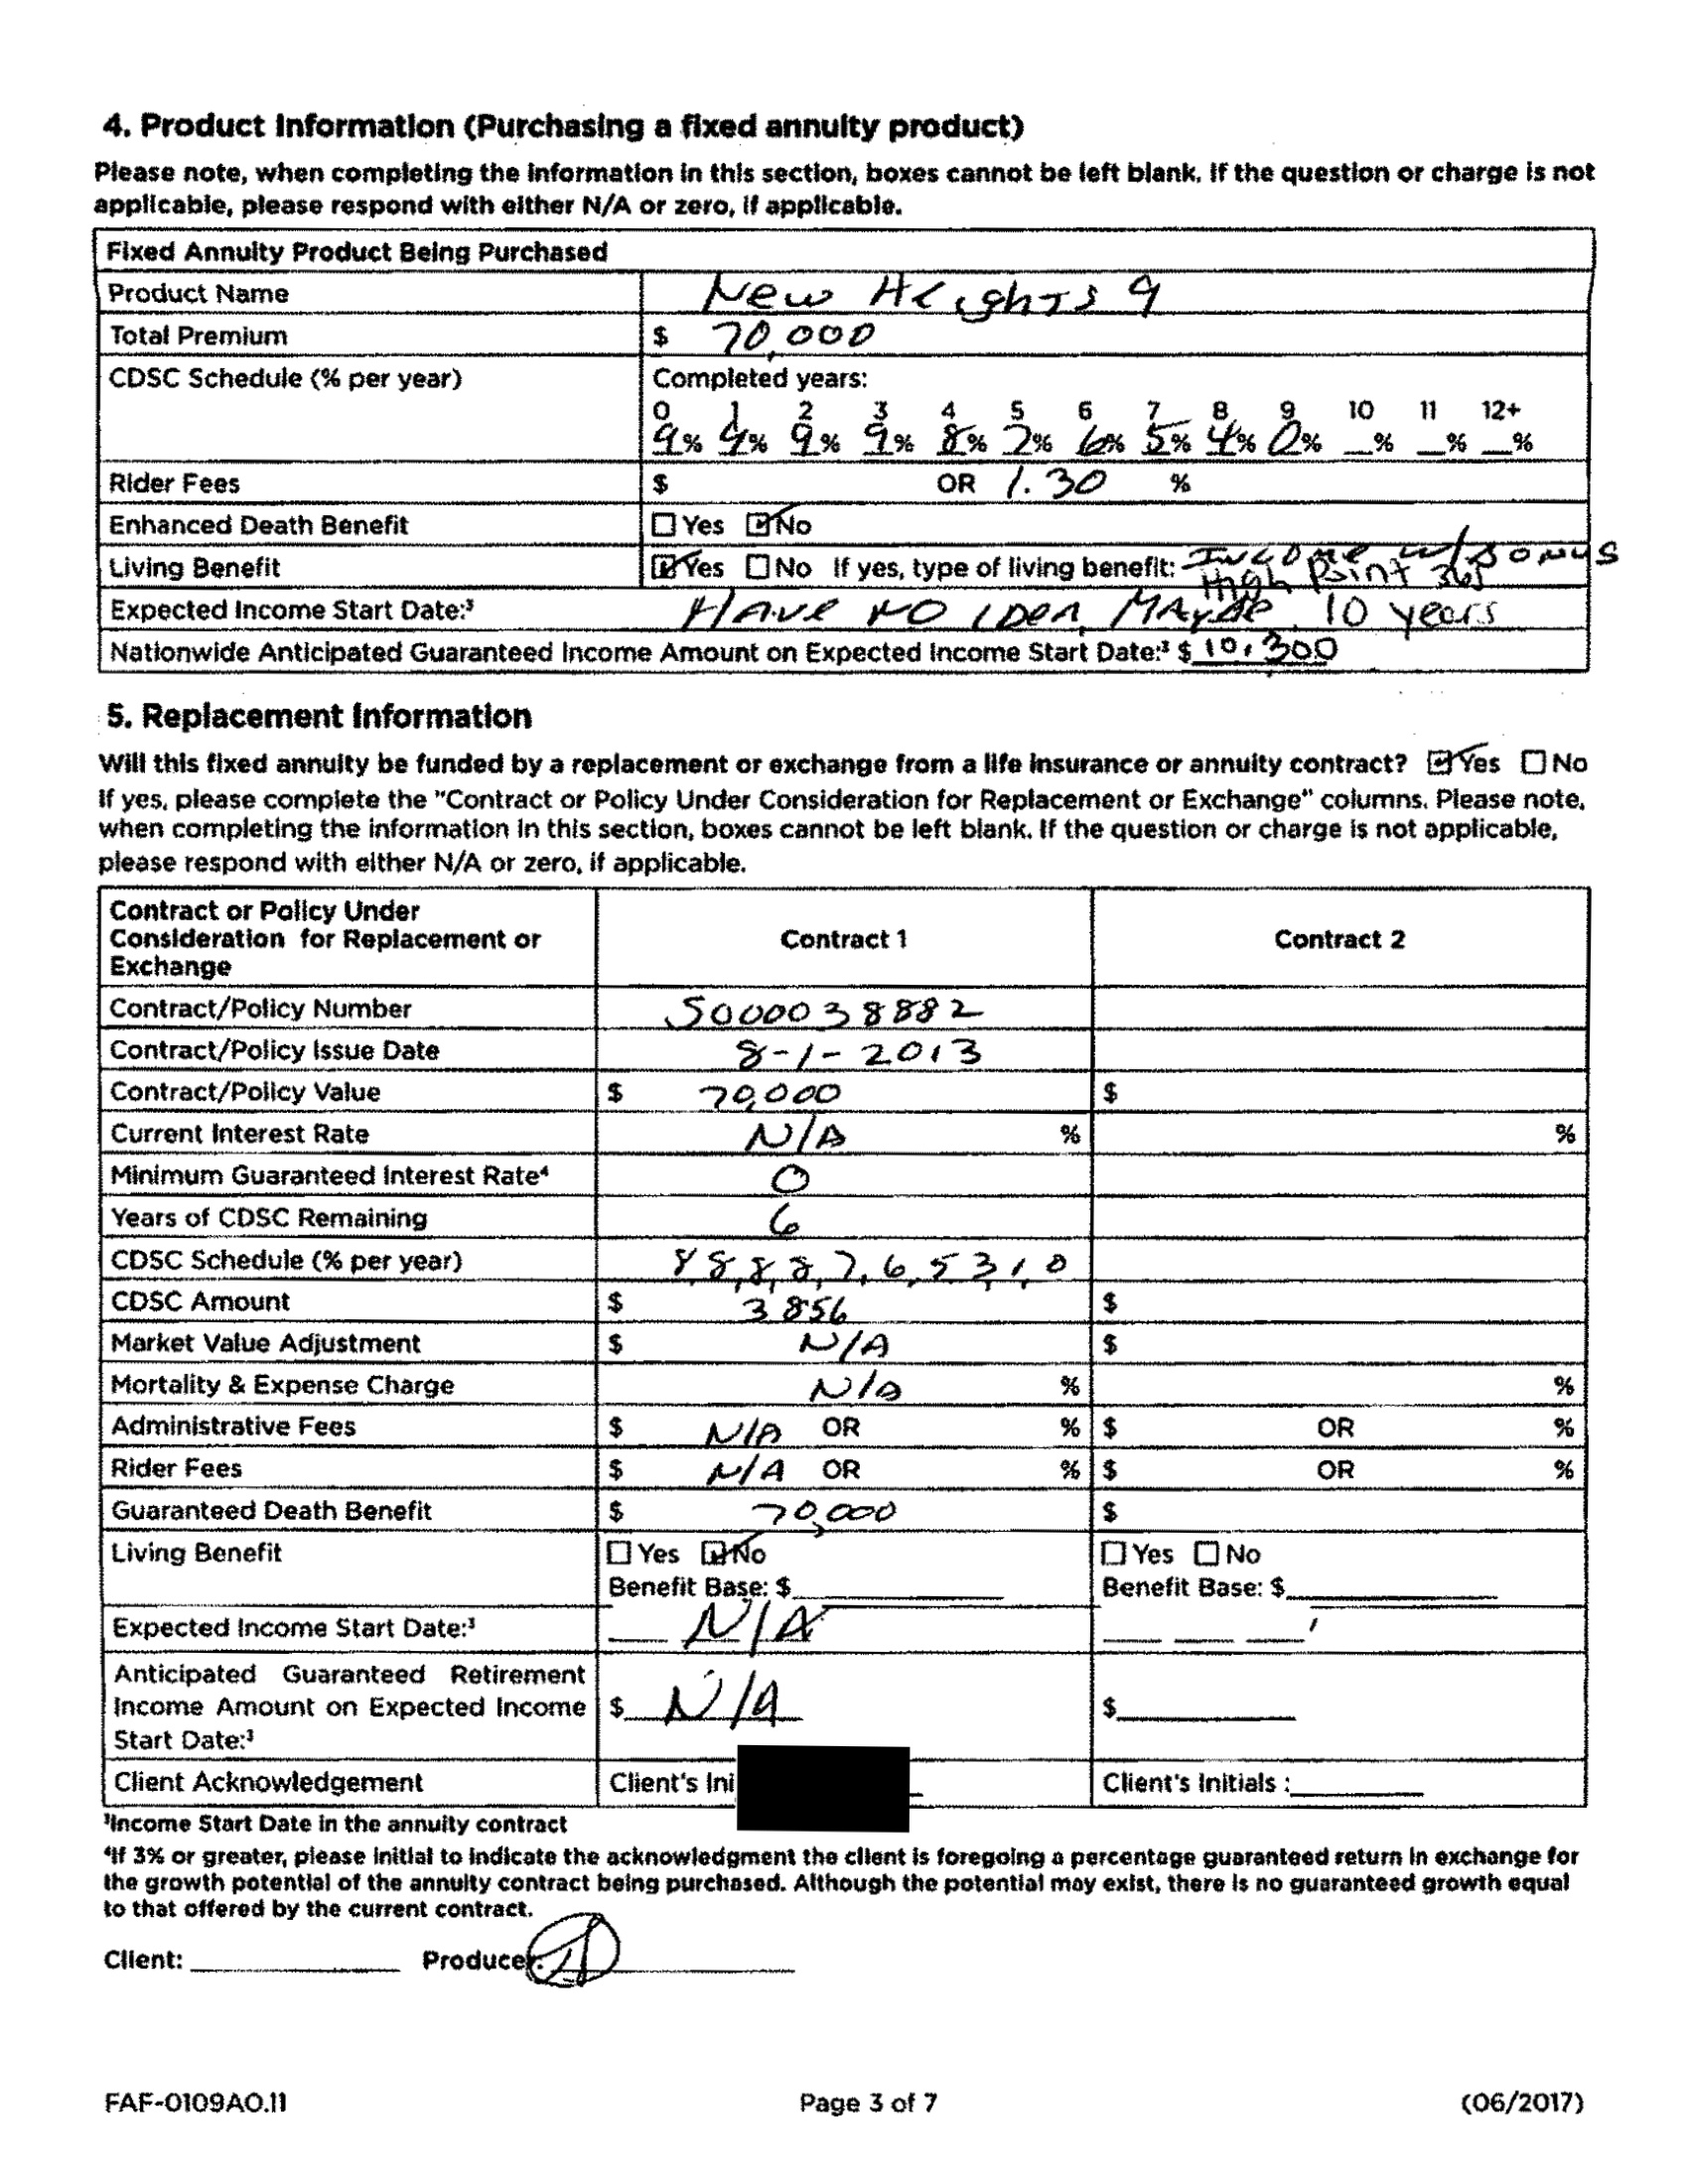 4. Product Information (Purchasing a fixed annuity product)
Please note, when completing the information in this section, boxes cannot be left blank. If the question or charge is not
applicable, please respond with either N/A or zero, if applicable.
Fixed Annuity Product Being Purchased
Product Name New Heights 9
Total Premium $ 70,000
CDSC Schedule (% per year) Completed years:
0 1 2 3 4 5 6 7 8 9 10 11 12+
9% 9% 9% 9% 8% 7% 6% 5% 4% 0% __% __% __%
Rider Fees $ OR 1.30 %
Enhanced Death Benefit ☐ Yes ☑ No
Living Benefit ☑ Yes ☐ No If yes, type of living benefit: Income w/Bonus
High Point 365
Expected Income Start Date:³ HAVE NO IDEA, MAYBE 10 years
Nationwide Anticipated Guaranteed Income Amount on Expected Income Start Date:³ $ 10,300
5. Replacement Information
Will this fixed annuity be funded by a replacement or exchange from a life insurance or annuity contract? ☑ Yes ☐ No
If yes, please complete the "Contract or Policy Under Consideration for Replacement or Exchange" columns. Please note,
when completing the information in this section, boxes cannot be left blank. If the question or charge is not applicable,
please respond with either N/A or zero, if applicable.
Contract or Policy Under
Consideration for Replacement or
Exchange
Contract 1 Contract 2
Contract/Policy Number 5000038882
Contract/Policy Issue Date 8-1-2013
Contract/Policy Value $ 70,000 $
Current Interest Rate N/A % %
Minimum Guaranteed Interest Rate⁴ 0
Years of CDSC Remaining 6
CDSC Schedule (% per year) 8,8,8,8,7,6,5,3,1,0
CDSC Amount $ 3856 $
Market Value Adjustment $ N/A $
Mortality & Expense Charge N/A % %
Administrative Fees $ N/A OR % $ OR %
Rider Fees $ N/A OR % $ OR %
Guaranteed Death Benefit $ 70,000 $
Living Benefit ☐ Yes ☑ No ☐ Yes ☐ No
Benefit Base: $ Benefit Base: $
Expected Income Start Date:³ N/A
Anticipated Guaranteed Retirement
Income Amount on Expected Income $ N/A $
Start Date:³
Client Acknowledgement Client's Ini Client's Initials :
³Income Start Date in the annuity contract
⁴If 3% or greater, please initial to indicate the acknowledgment the client is foregoing a percentage guaranteed return in exchange for
the growth potential of the annuity contract being purchased. Although the potential may exist, there is no guaranteed growth equal
to that offered by the current contract.
Client: Producer:
FAF-0109AO.11 Page 3 of 7 (06/2017)